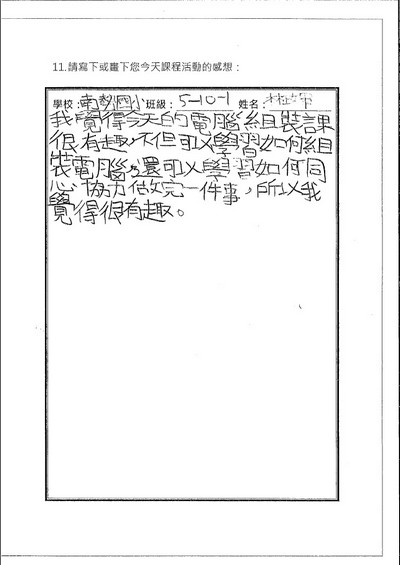 11.請寫下或畫下您今天課程活動的感想：
學校：南勢國小班級：5-10-1 姓名：林
我覺得今天的電腦組裝課
很有趣，不但可以學習如何組
裝電腦，還可以學習如何同
心協力做完一件事，所以我
覺得很有趣。